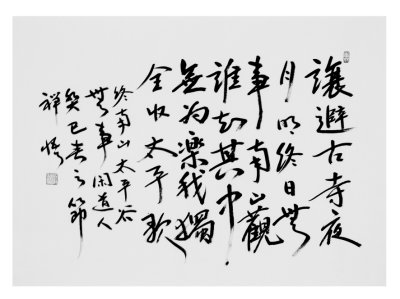 讓避古寺夜
月明終日無
事南山觀
誰知其中
無为樂我獨
全收太平歌
終南山太平谷
無事閑道人
癸巳春之節
祥悟